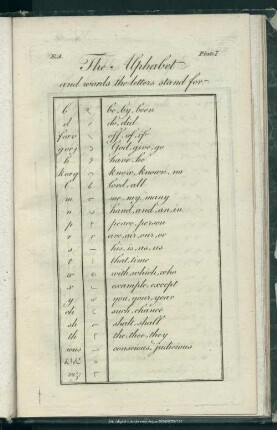 Plate I
The Alphabet
and words the letters stand for
b be, by, been
d do, did
off, of, if
God, give, go
h have, he
know, known
l lord, all
m me, my, many
n hand, and, an, in
p peace, person
r are, air, our, or
s his, is, as, us
t that, time
w with, which, who
x example, except
y you, your, year
ch such, chance
sh shalt, shall
th the, thee, they
ious conscious, judicious